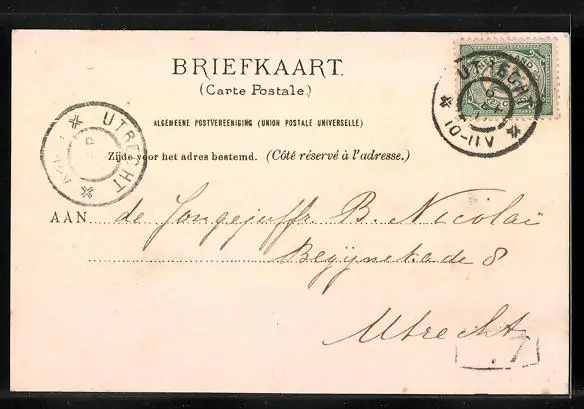 BRIEFKAART.
(Carte Postale.)
ALGEMEENE POSTVEREENIGING (UNION POSTALE UNIVERSELLE)
Zijde voor het adres bestemd. (Côté réservé à l'adresse.)
UTRECHT
UTRECHT
10-11V
AAN de Jongejuffr. B. Nicolaï
Beyijnekade 8
Utrecht
7